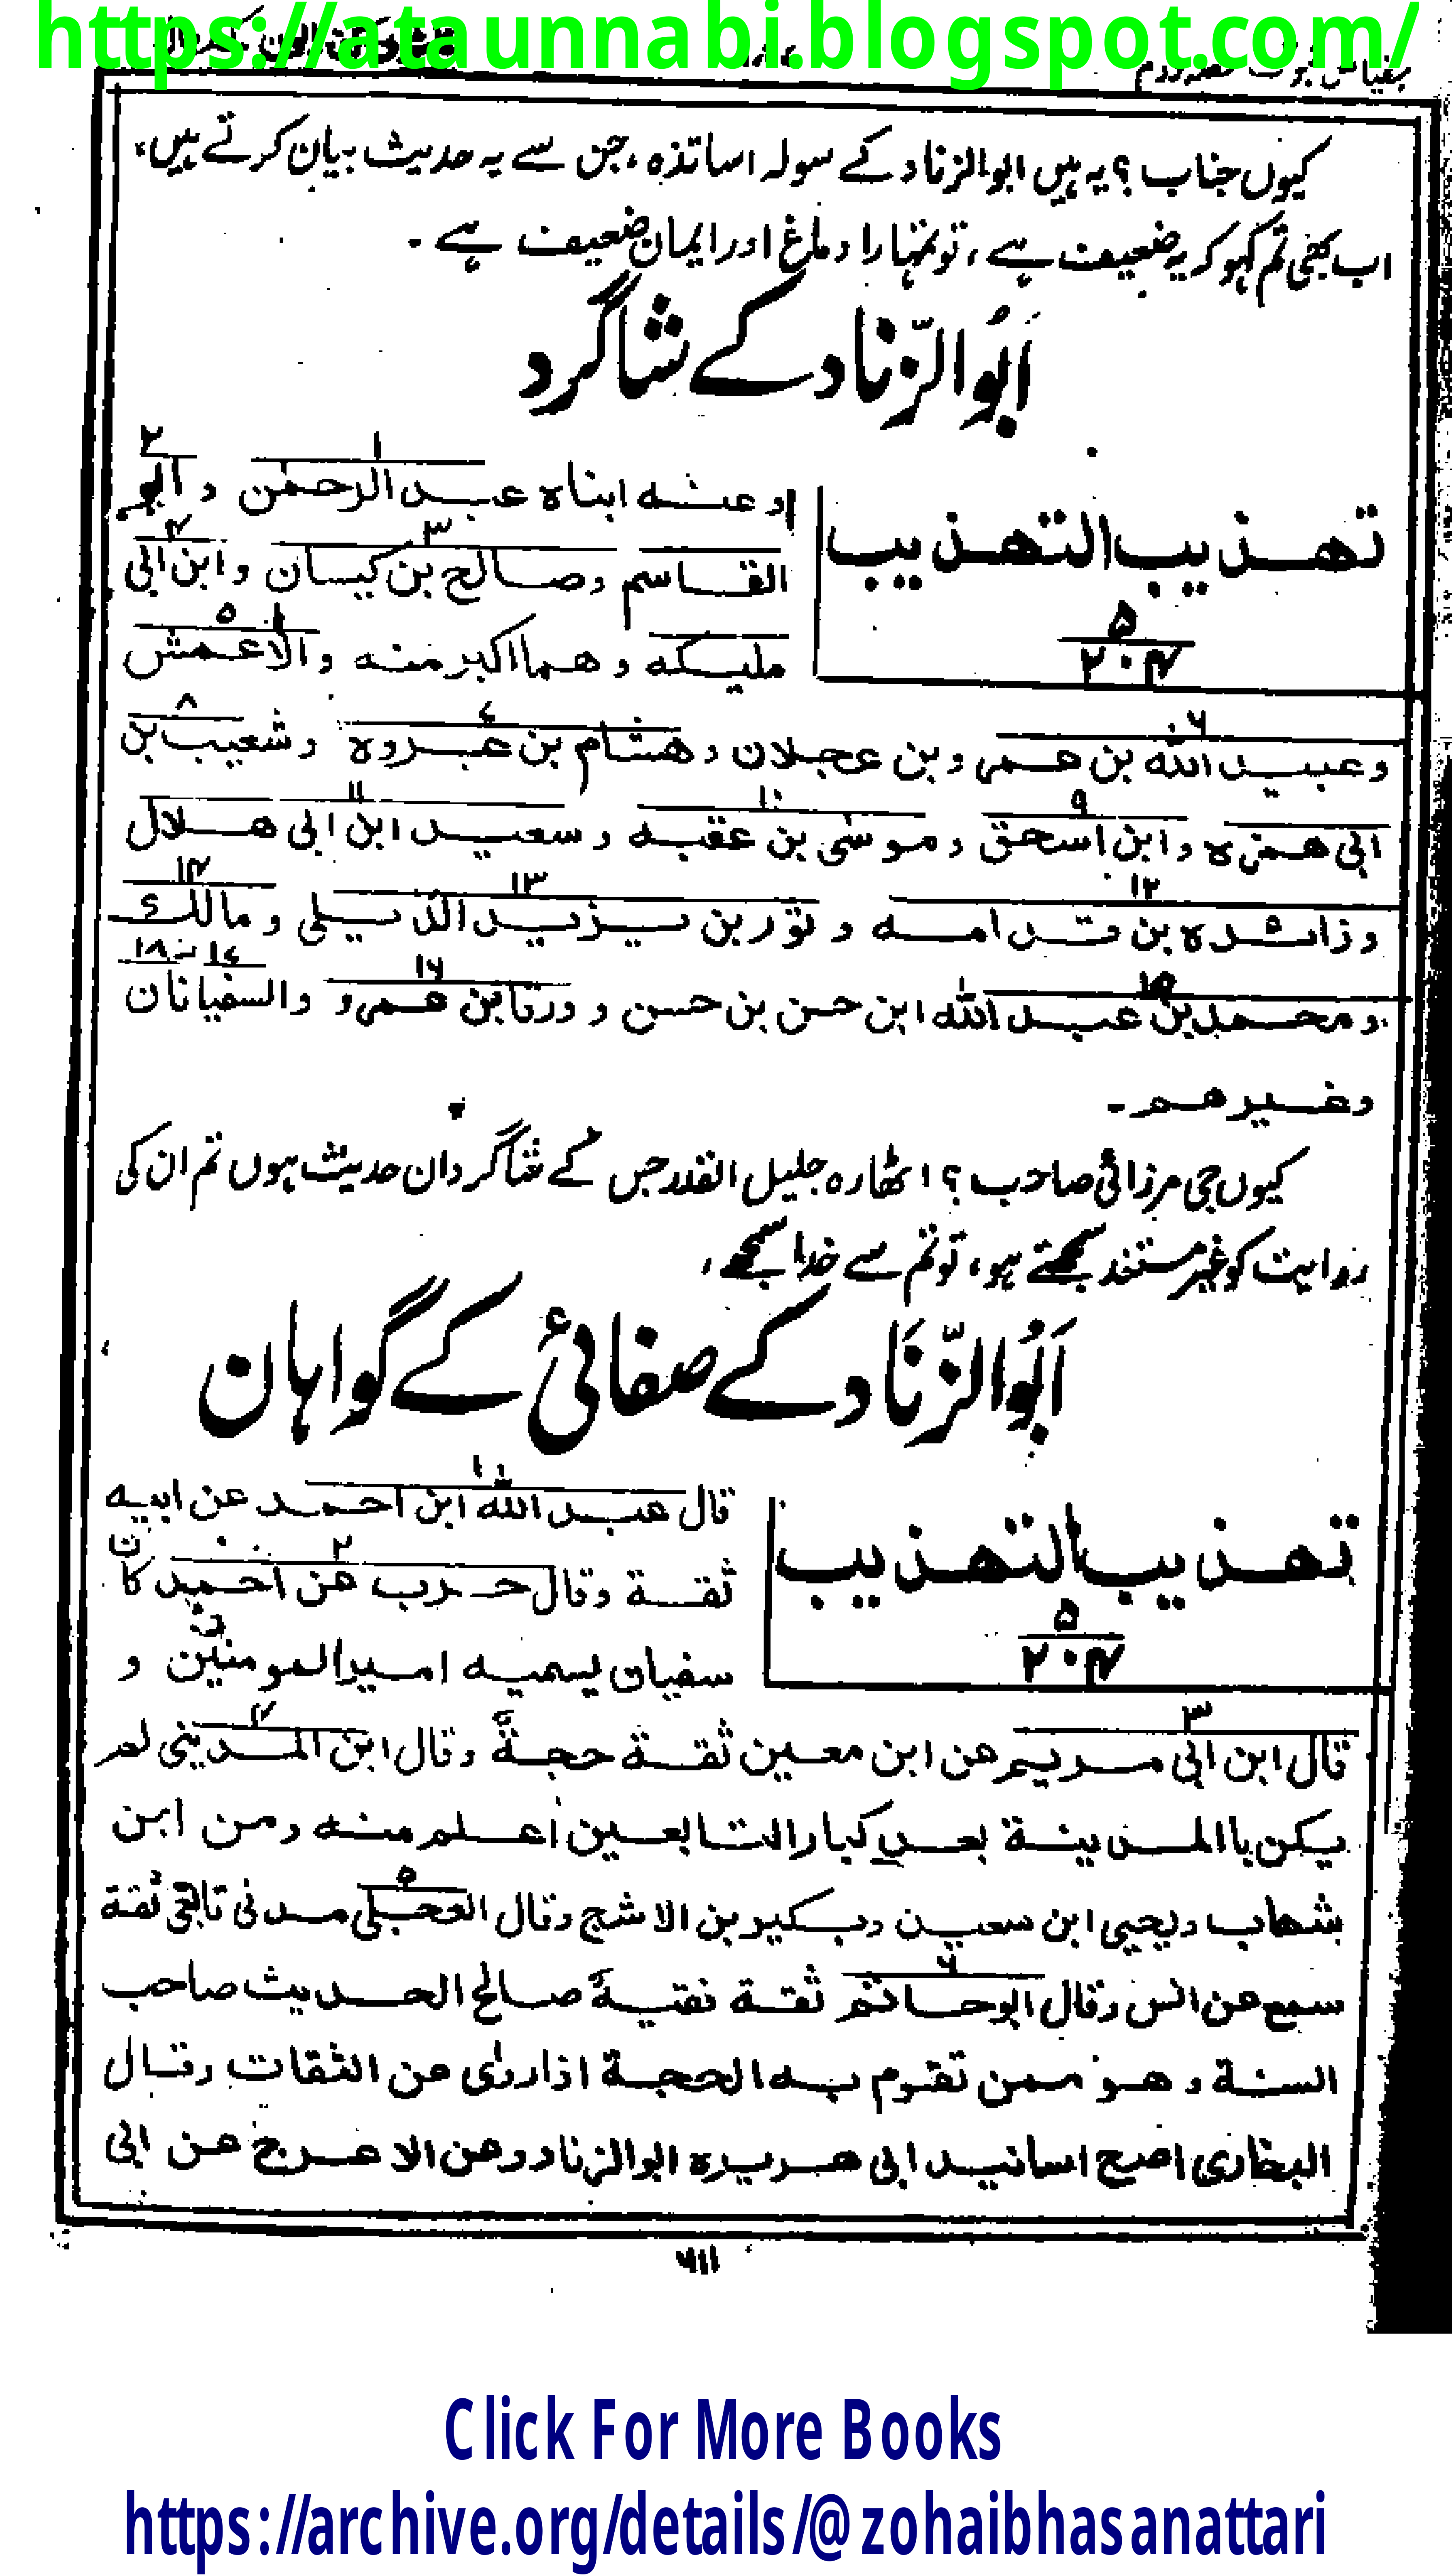 https://ataunnabi.blogspot.com/
مقیاس نبوت حصہ دوم
کیوں جناب؟ یہ ہیں ابوالزناد کے سولہ اساتذہ، جن سے یہ حدیث بیان کرتے ہیں،
اب بھی تم کہو کہ یہ ضعیف ہے، تو تمہارا دماغ اور ایمان ضعیف ہے۔
اَبُوالزّناد کے شاگرد
تهذيب التهذيب
۵
۲۰۴
وعنه ابناه عبد الرحمٰن و ابو
۱
۲
القاسم وصالح بن کیسان وابن ابی
۳
۴
ملیکه و هما اکبر منه والاعمش
۵
وعبید الله بن عمر وبن عجلان وهشام بن عروه وشعیب بن
۶
۷
۸
ابی حمزه وابن اسحٰق وموسٰی بن عقبه وسعید ابن ابی هلال
۹
۱۰
۱۱
وزائده بن قدامه وثور بن یزید الدیلی ومالک
۱۲
۱۳
۱۴
ومحمد بن عبد الله ابن حسن بن حسن و ورقا بن عمرو والسفیانان
۱۵
۱۶
۱۷ ۱۸
وغیرهم۔
کیوں جی مرزائی صاحب؟ اٹھارہ جلیل القدر جس کے شاگردان حدیث ہوں تم ان کی
روایت کو غیر مستند سمجھتے ہو، تو تم سے خدا سمجھے،
اَبُوالزّنَاد کے صفائی کے گواہان
تهذيب التهذيب
۵
۲۰۴
قال عبد الله ابن احمد عن ابیه
۱
ثقة وقال حرب عن احمد کان
۲
سفیان یسمیه امیر المومنین و
قال ابن ابی مریم عن ابن معین ثقة حجةً وقال ابن المدینی لم
۳
۴
یکن باالمدینة بعد کبار التابعین اعلم منه ومن ابن
شهاب ویحیی ابن سعید وبکیر بن الاشج وقال العجلی مدنی تابعی ثقة
۵
سمع عن انس وقال ابوحاتم ثقة فقیةً صالح الحدیث صاحب
۶
السنة وهو ممن تقوم به الحجة اذا روٰی عن الثقات وقال
البخاری اصح اسانید ابی هریره ابوالزناد وعن الاعرج عن ابی
۶۱۱
Click For More Books
https://archive.org/details/@zohaibhasanattari